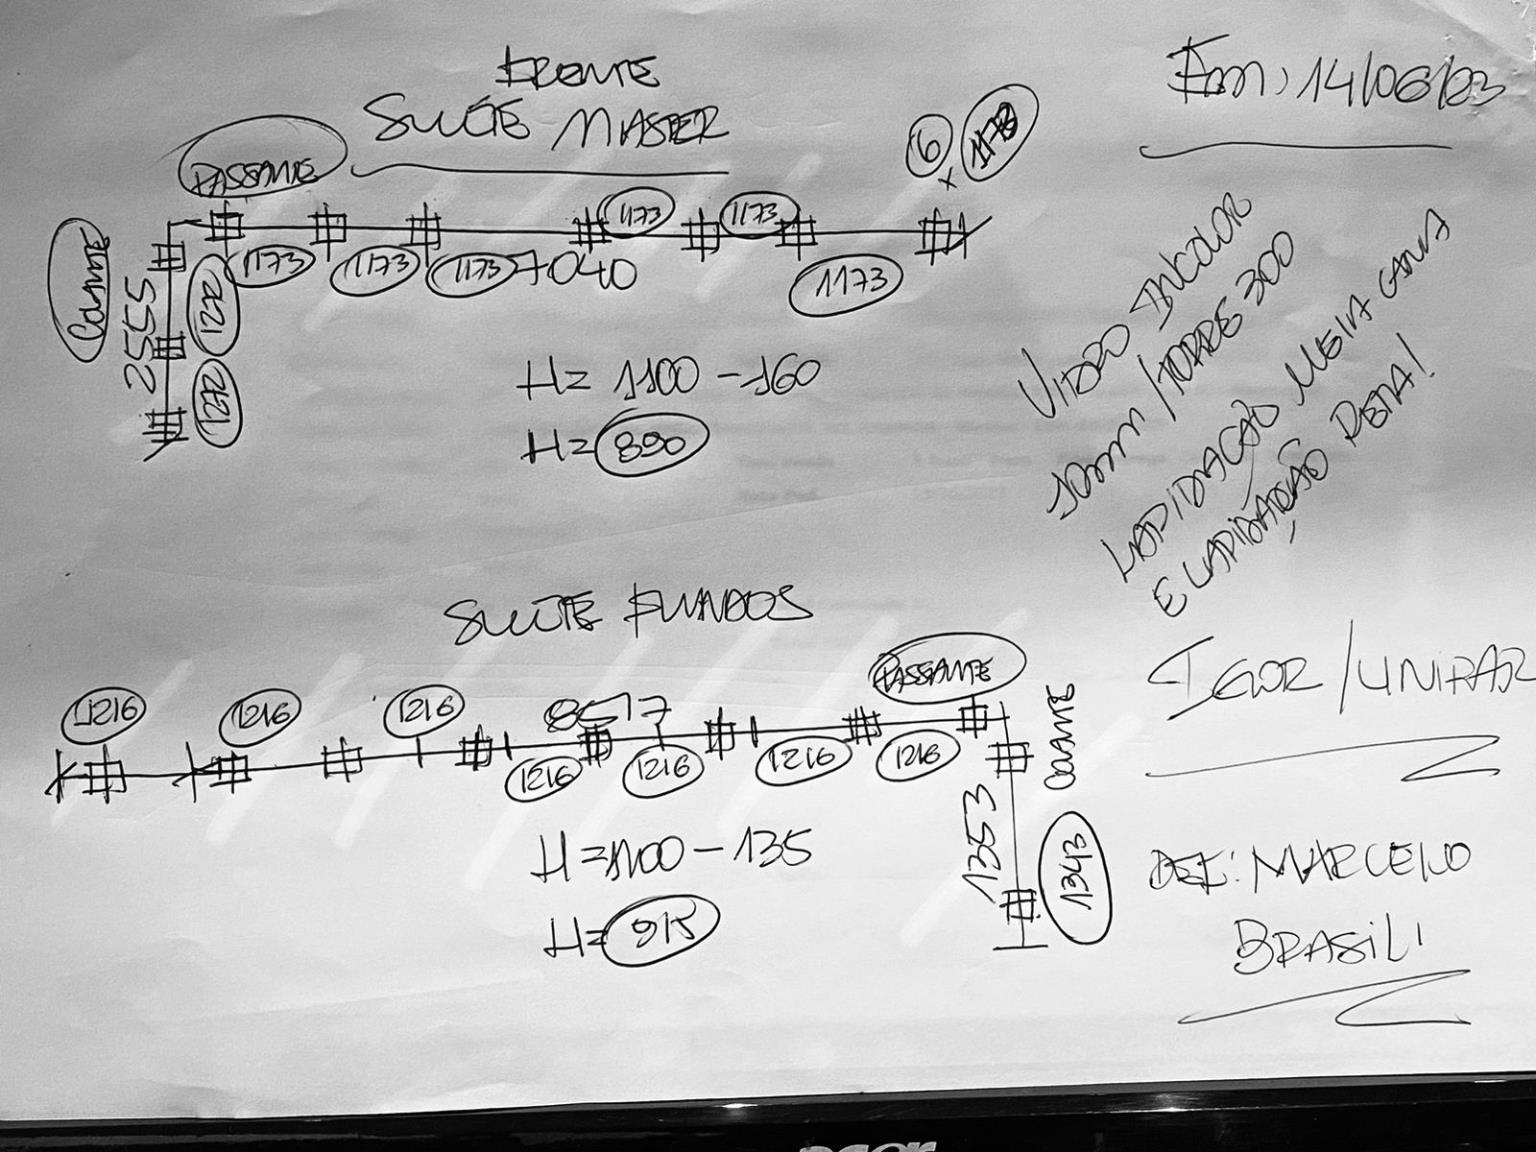 FRENTE
SUÍTE MASTER
Em, 14/06/23
PASSANTE
6 x 1173
1173
1173
Colante
2555
1272
1272
1173
1173
1173
7040
1173
H= 1100 - 160
H= 890
VIDRO INCOLOR
10mm / TORRE 300
LAPIDAÇÃO MEIA CANA
E LAPIDAÇÃO RETA!
SUÍTE FUNDOS
PASSANTE
1216
1216
1216
8517
1216
1216
1216
1216
Colante
1353
1343
H=1100 - 135
H= 915
IGOR/UNIPAR
REF: MARCELO
BRASILI
acer